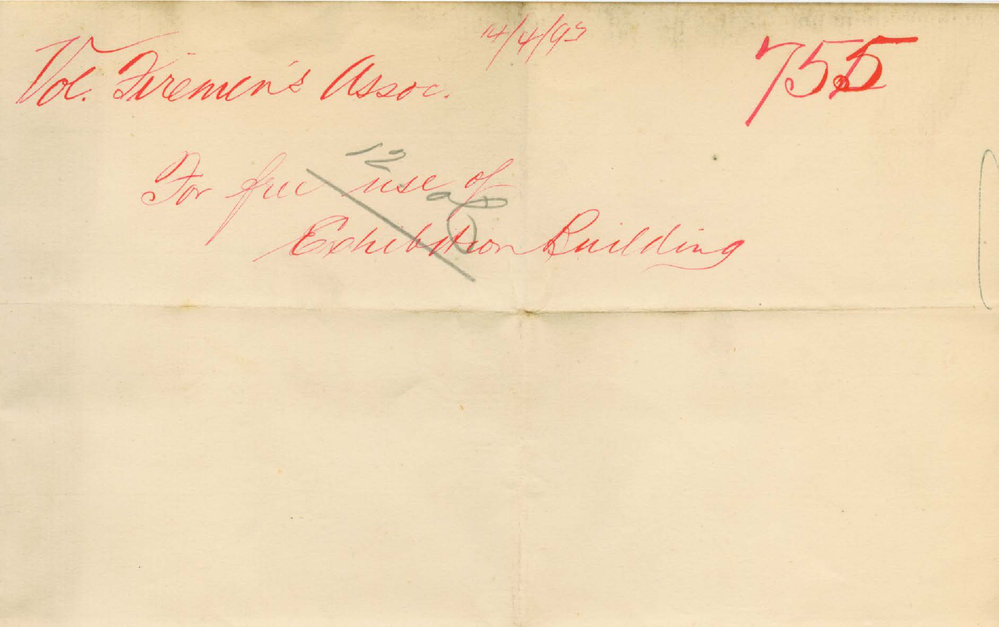 14/4/93
Vol. Firemen's Assoc.
755
12
For free use of
Exhibition Building